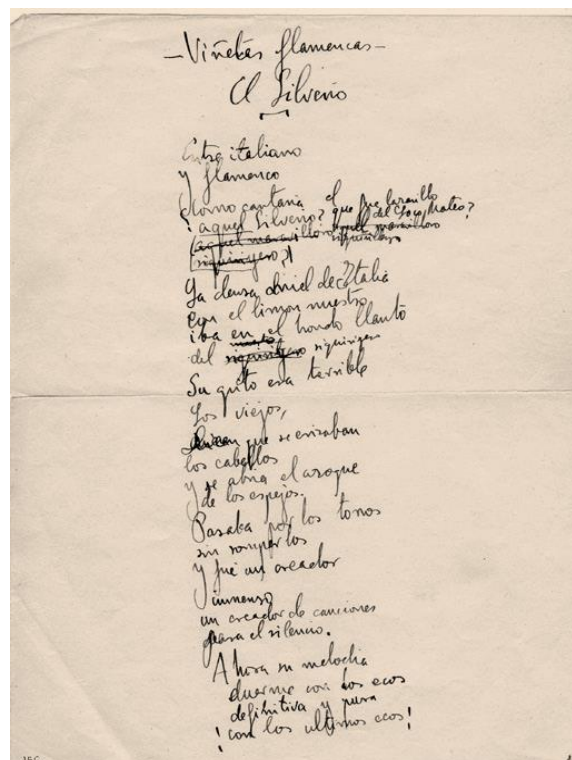 - Viñetas flamencas -
El Silverio
Entre italiano
y flamenco
¿Como cantaria el
aquel Silverio? que fue
del loco Mateo?
(aquel maravilloso
siquiriyero?)
siquiriyero
La densa miel de Italia
con el limon nuestro
iva en el hondo llanto
del siquiriyero siquiriyero
Su grito era terrible
Los viejos,
dicen que se erizaban
los cabellos
y se abria el azogue
de los espejos.
Pasaba por los tonos
sin romperlos
y fué un creador
inmenso
un creador de canciones
para el silencio.
Ahora su melodia
duerme con los ecos
definitiva y pura
¡con los ultimos ecos!